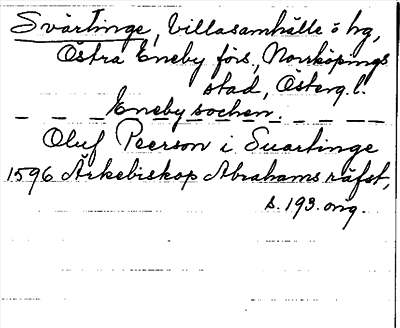 Svärtinge, Villasamhälle o hg,
Östra Eneby förs., Norrköpings
stad, Österg. l.
Eneby socken.
Oluf Peerson i Suartinge
1596 Ärkebiskop Abrahams räfst,
s. 193. orig.